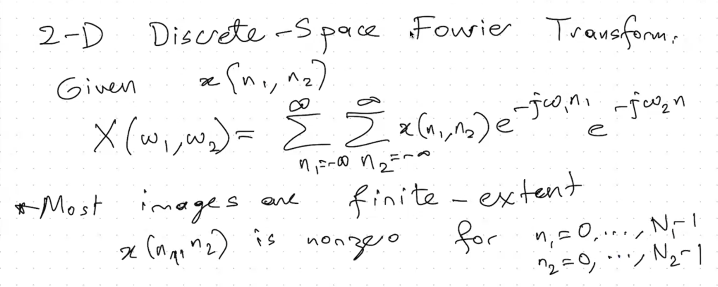 2-D Discrete-Space Fourier Transform.
Given x(n₁, n₂)
X(ω₁,ω₂) = ∑_{n₁=-∞}^{∞} ∑_{n₂=-∞}^{∞} x(n₁,n₂) e^{-jω₁n₁} e^{-jω₂n}
*Most images are finite-extent
x(n₁, n₂) is nonzero for n₁=0, ..., N₁-1
n₂=0, ..., N₂-1